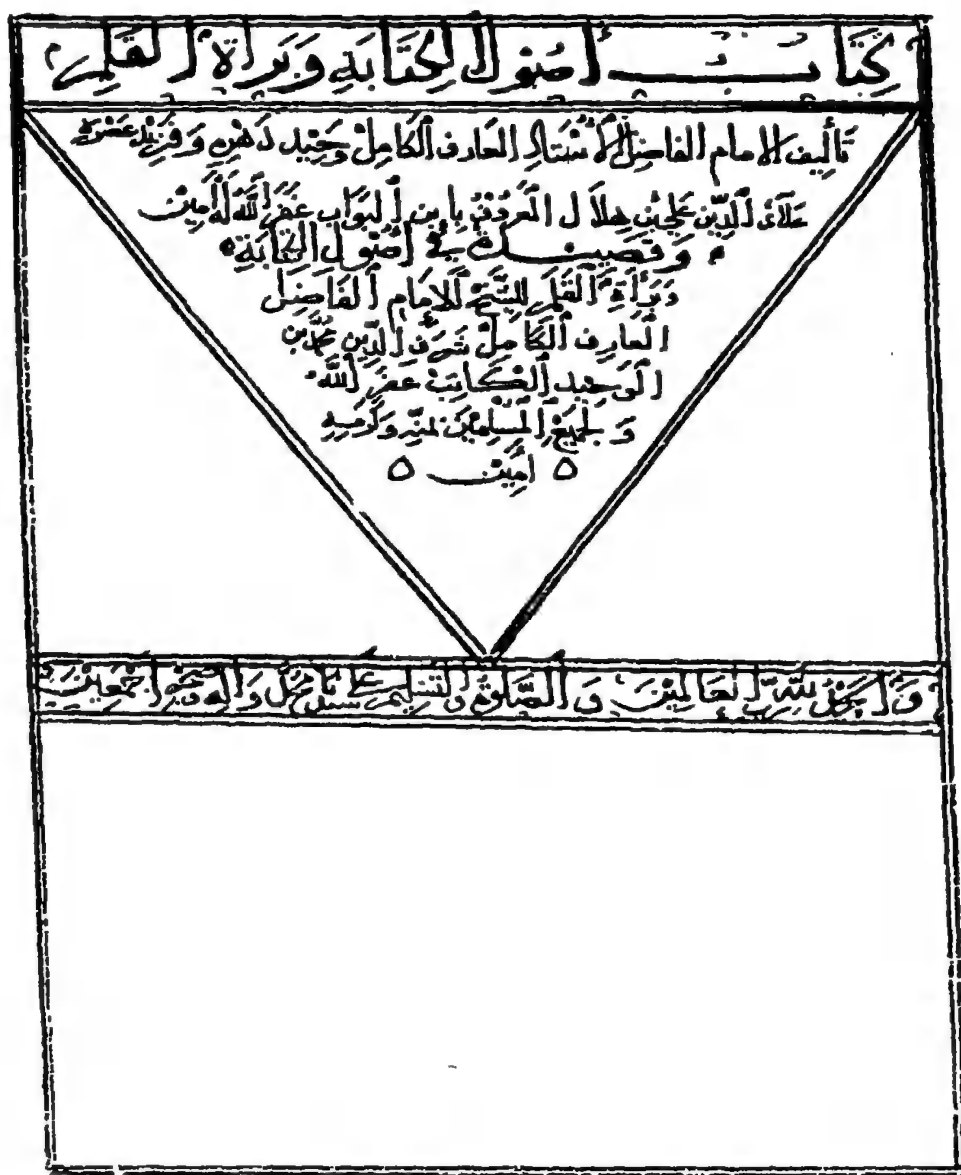 كتاب أصول الكتابة وبراة القلم
تأليف الامام الفاضل الأستاد العارف الكامل وحيد دهره وفريد عصره
علاء الدين علي بن هلال المعروف بابن البواب غفر الله له امين
وقصيدة في أصول الكتابة
وبراة القلم للشيخ الامام الفاضل
العارف الكامل شرف الدين محمد بن
الوحيد الكاتب غفر الله
ولجميع المسلمين بمنه وكرمه
امين
والحمد لله رب العالمين والصلوة والتسليم على سيدنا محمد واله وصحبه اجمعين